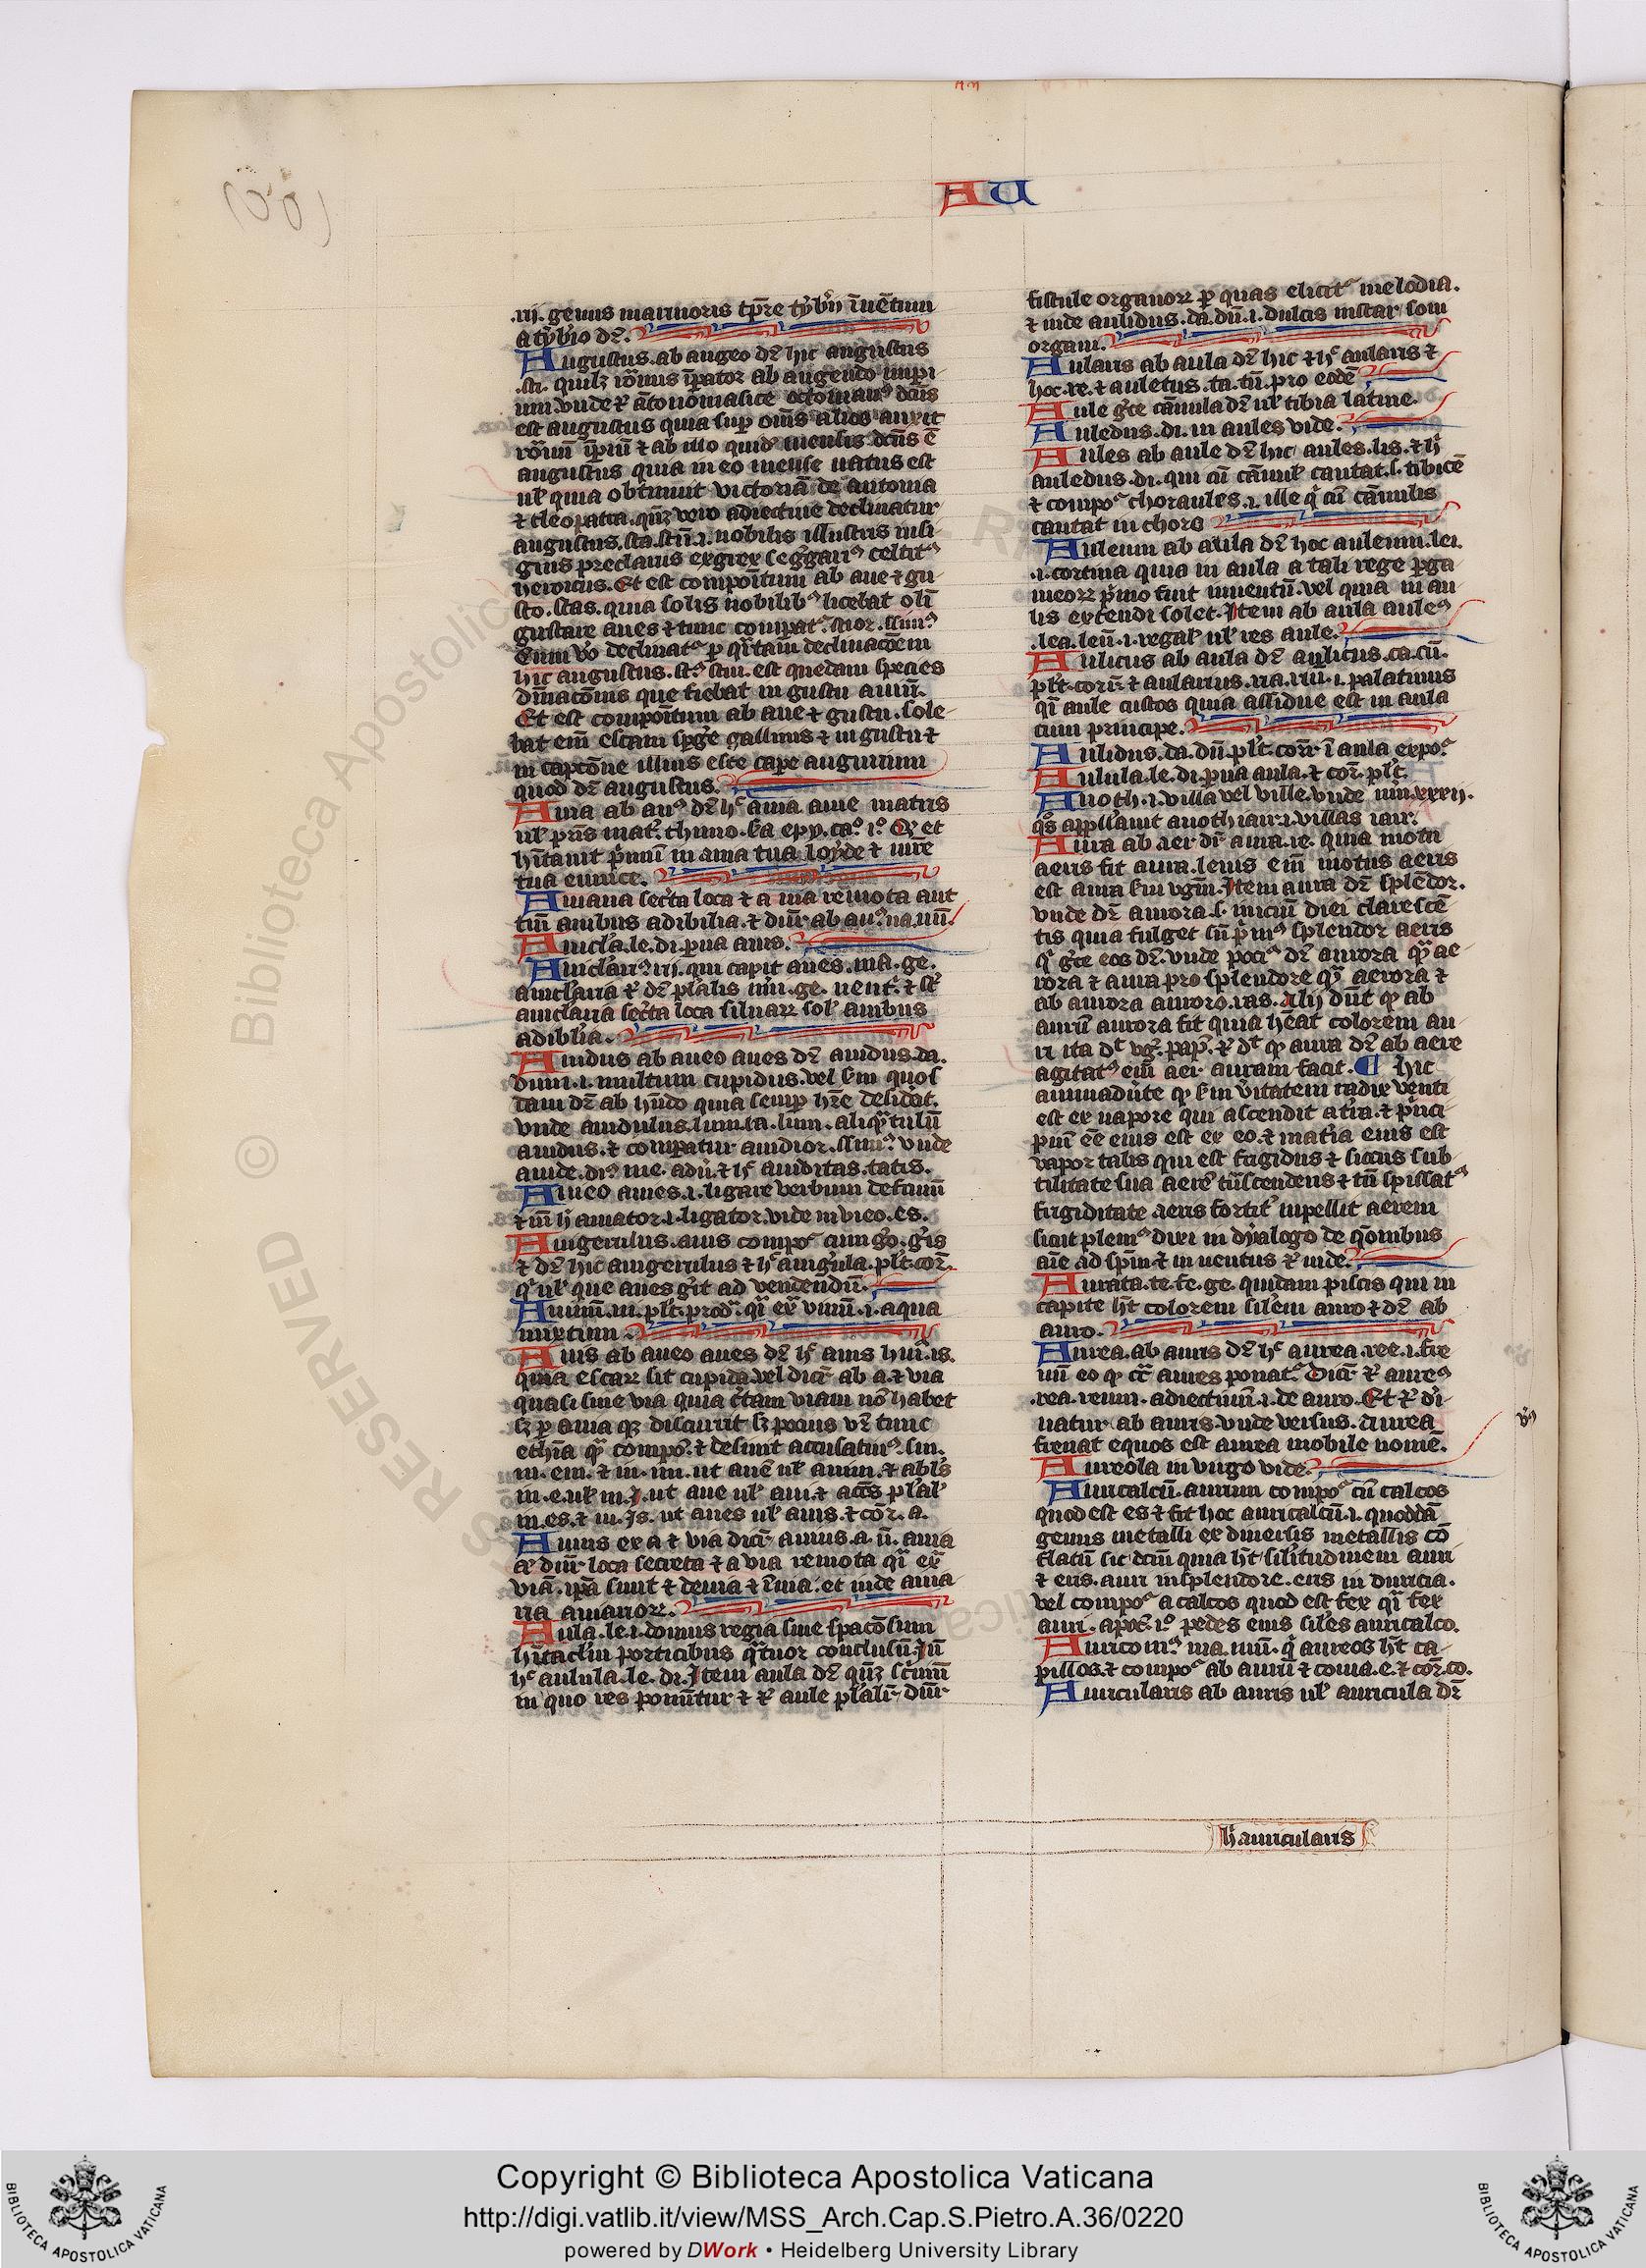 AU
.iij. genus marmoris tp̄re tyb'ij īuētum
a tyb'io dꝛ.
Augustus. ab augeo dꝛ hic augustus
.sti. quilꝫ rōnus īpator ab augendo impi
um. vnde ⁊ ātonomasice octouian⁹ dcūs
est augustus quia sup om̄s alios auxit
rōnū īpiū ⁊ ab illo quid' mensis dcūs ē
augustus quia in eo mense natus est
ul' quia obtinuit victoriā de antonia
⁊ cleopatra. qn̄ꝫ vero adiectiue declinatur
augustus. sta. stū .i. nobilis illustris insi
gnis preclarus egregi⁹ celsit⁹
heroicus. Et est compoītum ab aue ⁊ gu
sto. stas. quia solis nobilib⁹ licebat olī
gustare aues ⁊ tunc compat. stior. ssim⁹
Cum v'o declinat' p quartam declinacōem
hic augustus. st⁹ stui. est quedam species
diuinacōnis que fiebat in gustu auiū.
Et est compoītum ab aue ⁊ gustu. sole-
bat em̄ escam spg'e gallinis ⁊ in gustu ⁊
in capcōne illius esce cape augurium
quod dꝛ augustus.
Auia ab au⁹ dꝛ h' auia auie matris
ul' pr̄is mat'. thimo. ẜa epy. ca⁰. i⁰. Q et
hītauit p'mū in auia tua loyde ⁊ mr̄e
tua eunice.
Auiaria sec'ta loca ⁊ a uia remota aut
tm̄ auibus adibilia. ⁊ dn̄r ab au⁹. ria. riū.
Auicl'a. le. di. pua auis.
Auiclari⁹. rij. qui capit aues. ma. ge.
auiclaria ⁊ dꝛ pl'alis nūi. ge. neut'. ⁊ st'
auiclaria sec'ta loca siluaꝝ sol' auibus
adibl'ia.
Auidus ab aueo aues dꝛ auidus. da.
dum. i. multum cupidus. vel ẜm quos
dam dꝛ ab hn̄do quia semp hr̄e desidat.
vnde auidulus. lum. la. lum. aliq̄ntulū
auidus. ⁊ compatur auidior. ssim⁹. vnde
auide. di⁹. me. adū. ⁊ h' auiditas. tatis.
Auieo auies. i. ligare verbum defcium
⁊ iñ h' auiator. i. ligator. vide in vieo. es.
Auigerulus. auis compo' cum g'o. g'is
⁊ dꝛ hic auigerulus ⁊ h' auig'ula. pl't. cor̄.
q' ul' que aues g'it ad vendendū.
Auinū. ni. pl't. prod'. q̄i ex̄ vinū. i. aqua
mixtum.
Auis ab aueo aues dꝛ h' auis hui'. is.
quia escaꝝ sit cupida. vel dicr̄ ab a. ⁊ via
quasi sine via quia c'tam viam nō habet
sꝫ p auia queqꝫ discurrit sꝫ pocius vꝛ tunc
ethīa q̄ꝫ compo'. ⁊ desinit accusatiu⁹. sin.
in. em. ⁊ in. im. ut auē ul' auim. ⁊ abl's
in. e. ul' in. i. ut aue ul' aui. ⁊ acc̄s pl'al'
in. es. ⁊ in. is. ut aues ul' auis. ⁊ cōr. a.
Auius ex a ⁊ via dicr̄ auius. a. ū. auia
⁊ dn̄r loca secreta ⁊ a via remota q̄i ex̄
viā. ip̄a sunt ⁊ deuia ⁊ īuia. et inde auia
ria auiarioꝝ.
Aula. le. i. domus regia siue spacōsum
hītacl'm porticibus q̄tuor conclusū. Iñ
h' aulula. le. di. Item aula dꝛ qn̄ꝫ scrinū
in quo res ponūtur ⁊ ⁊ aule pl'alr̄ dn̄r
fistule organoꝝ p quas elicit' melodia.
⁊ inde aulidus. da. dū. i. dulcis instar soni
organi.
Aularis ab aula dꝛ hic ⁊ h' aularis ⁊
hoc. re. ⁊ auletus. ta. tū. pro eodē
Aule g'ce cānula dꝛ ul' tibia latine.
Auledus. di. in aules vide.
Aules ab aule dꝛ hic aules. lis. ⁊ h'
auledus. di. qui cū cānul' cantat. s. tibicē
⁊ compo' choraules. i. ille q' cū cānulis
cantat in choro
Auleum ab aula dꝛ hoc auleum. lei.
.i. cortina quia in aula a tali rege pga
meoꝝ p'mo fuit inuentū. vel quia in au
lis extendi solet. Item ab aula aule⁹
.lea. leū. i. regal' ul' res aule.
Aulicus ab aula dꝛ aulicus. ca. cū.
pl't. corū. ⁊ aularius. ria. riū. i. palatinus
q̄i aule custos quia assidue est in aula
cum principe.
Aulidus. da. dū. pl't. corr̄ ī aula expo'.
Aulula. le. di. pua aula. ⁊ cor̄. pl't.
Auoth. i. villa vel ville. vnde nūi. xxxij.
q's appll'auit auoth iair. i. villas iair.
Aura ab aer dr̄ aura. re. quia motu
aeris fit aura. lenis em̄ motus aeris
est aura ẜm vgm̄. Item aura dꝛ splēdor.
vnde dꝛ aurora. s. iniciū diei claresce
tis quia fulget sū p'm⁹ splendor aeris
q' g'ce eos dꝛ. vnde poci⁹ dꝛ aurora q̄i ae
rora ⁊ aura pro splendore q̄i aerora ⁊
ab aurora auroro. ras. Alij dn̄t ꝙ ab
aurū aurora sit quia hēat colorem au
ri ita dt̄ vg'. pap'. ⁊ dt̄ ꝙ aura dꝛ ab aere
agitat⁹ em̄ aer auram facit. ¶ Hic
animadūte ꝙ ẜm v'itatem radix venti
est ex uapore qui ascendit a t'ra. ⁊ p'nci
pm̄ eē eius est ex eo. ⁊ mat'ia eius est
vapor talis qui est frigidus ⁊ siccus sub
tilitate sua aerē tn̄scendens ⁊ tn̄ spissat⁹
frigiditate aeris fortit' inpellit aerem
sicut plem⁹ dixi in dyalogo de q̄onibus
aīe ad sp̄m ⁊ in uentus ⁊ inde.
Aurata. te. fe. ge. quidam piscis qui in
capite h't colorem sil'em auro ⁊ dꝛ ab
auro.
Aurea. ab auris dꝛ h' aurea. ree. i. fre
nū eo ꝙ cr̄ aures ponat'. Dicr̄ ⁊ aure⁹
.rea. reum. adiectiuū. i. de auro. Et ⁊ di'
uatur ab auris. vnde versus. Aurea
frenat equos est aurea mobile nomē.
v⁹
Aureola in virgo vide.
Auricalcū. aurum compo' cū calcos
quod est es ⁊ fit hoc auricalcū. i. quoddā
genus metalli ex diuersis metallis cō
flatū sic dcūm quia h't sil'itudinem auri
⁊ eris. auri in splendore. eris in duricia.
vel compo' a calcos quod est fex q̄i fex
auri. apoc'. i⁰. pedes eius sil'es auricalco.
Auricom⁹. ma. mū. q' aureos h't ca-
pillos. ⁊ compo' ab aurū ⁊ coma. e. ⁊ cor̄. co.
Auricularis ab auris ul' auricula dꝛ
h' auricularis
Copyright © Biblioteca Apostolica Vaticana
http://digi.vatlib.it/view/MSS_Arch.Cap.S.Pietro.A.36/0220
powered by DWork • Heidelberg University Library
BIBLIOTECA APOSTOLICA VATICANA
BIBLIOTECA APOSTOLICA VATICANA